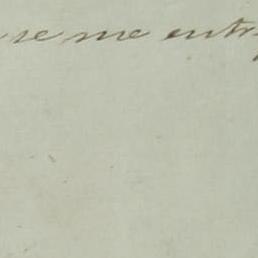 se me entr